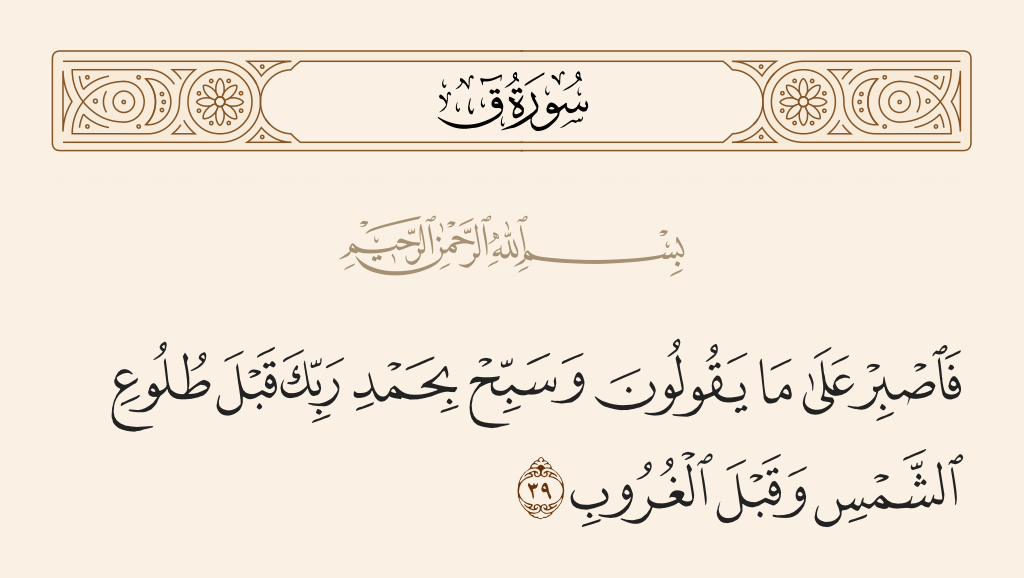 سُورَةُ ق
بِسْمِ ٱللَّهِ ٱلرَّحْمَٰنِ ٱلرَّحِيمِ
فَٱصْبِرْ عَلَىٰ مَا يَقُولُونَ وَسَبِّحْ بِحَمْدِ رَبِّكَ قَبْلَ طُلُوعِ
ٱلشَّمْسِ وَقَبْلَ ٱلْغُرُوبِ ٣٩